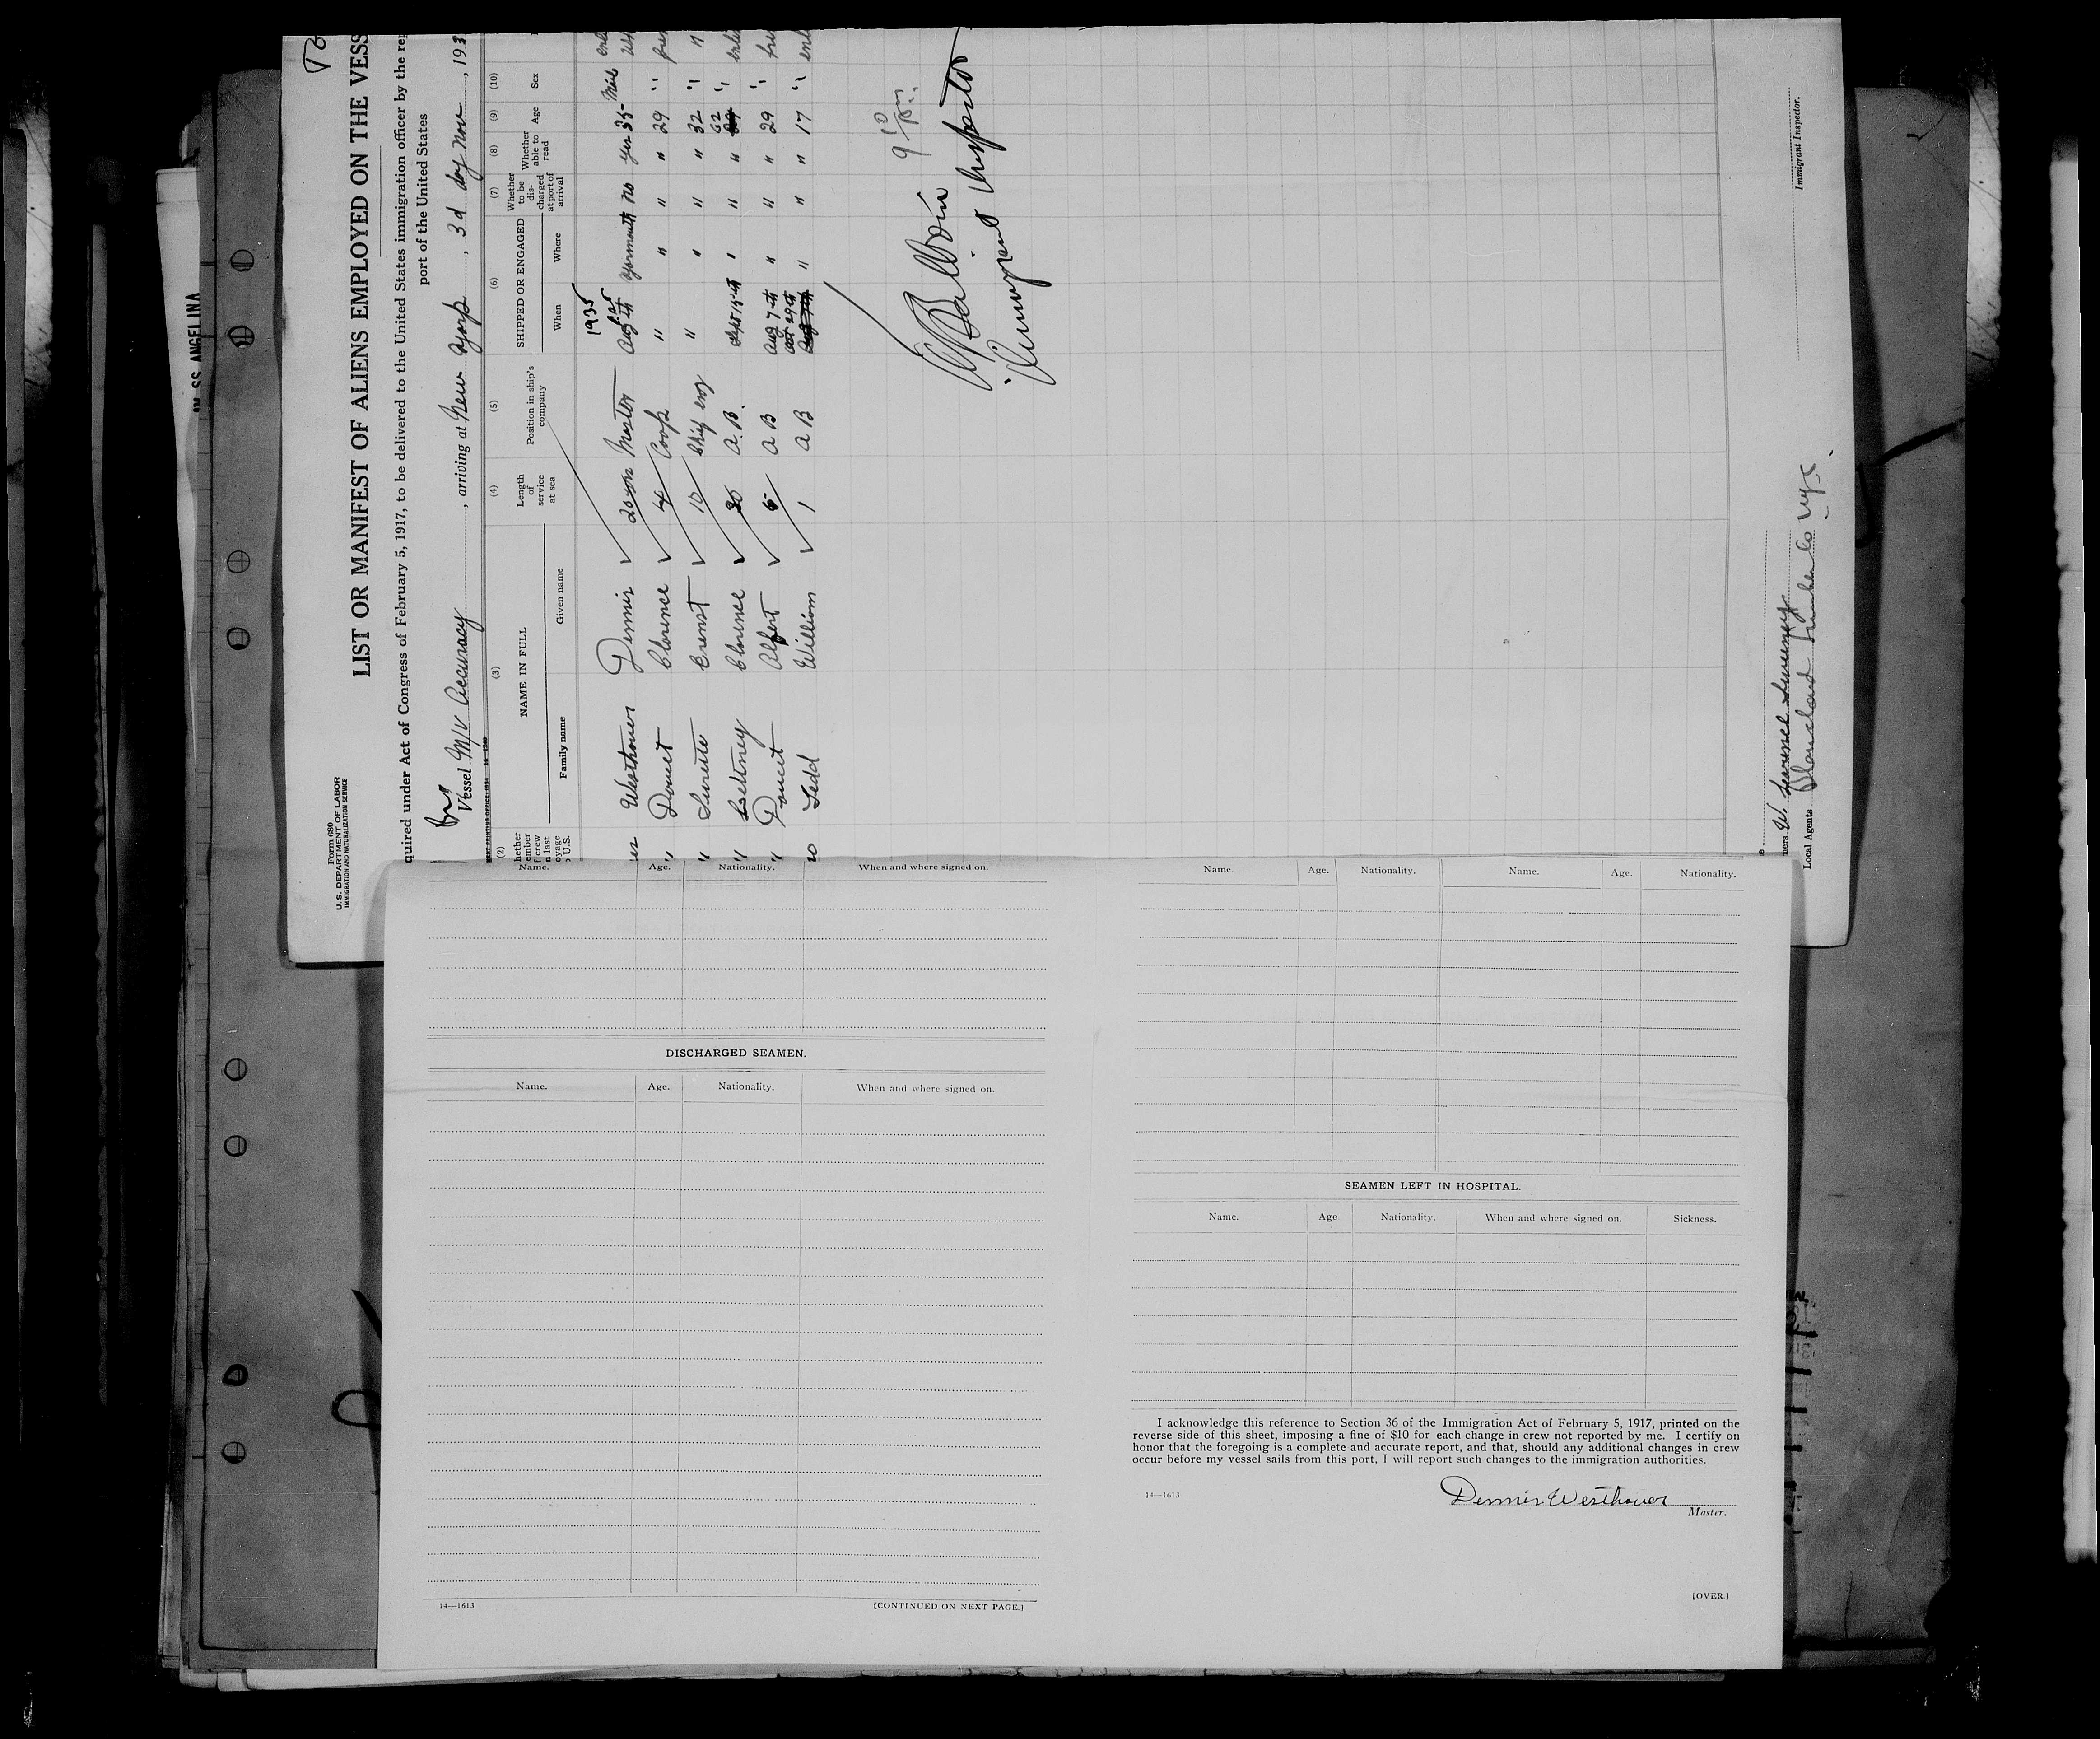 Form 680
U. S. DEPARTMENT OF LABOR
IMMIGRATION AND NATURALIZATION SERVICE
LIST OR MANIFEST OF ALIENS EMPLOYED ON THE VESS
quired under Act of Congress of February 5, 1917, to be delivered to the United States immigration officer by the rep
port of the United States
Vessel M/V Accuracy, arriving at New york, 3d day Nov, 193
(2) (3) (4) (5) (6) (7) (8) (9) (10)
hether ember f crew n last oyage o U.S.
NAME IN FULL
Family name Given name
Length of service at sea
Position in ship's company
SHIPPED OR ENGAGED
When Where
Whether to be discharged at port of arrival
Whether able to read
Age
Sex
1935
Westhaver Dennis 20 yrs Master Aug yarmouth no yes 35
Doucet Clarence 4 Cook " " " " 29 "
Ernest 10 Chief eng " " " " 32 "
Clarence 20 A. B. Sept 15th " " " 62 "
Doucet Albert A B Aug 7th " " " 29 "
no Ledd William 1 A B " " " 17 "
Immigrant Inspector
Local Agents
Immigrant Inspector.
SS ANGELINA
Name. Age. Nationality. When and where signed on.
DISCHARGED SEAMEN.
Name. Age. Nationality. When and where signed on.
14—1613 [CONTINUED ON NEXT PAGE.]
Name. Age. Nationality. Name. Age. Nationality.
SEAMEN LEFT IN HOSPITAL.
Name. Age Nationality. When and where signed on. Sickness.
I acknowledge this reference to Section 36 of the Immigration Act of February 5, 1917, printed on the
reverse side of this sheet, imposing a fine of $10 for each change in crew not reported by me. I certify on
honor that the foregoing is a complete and accurate report, and that, should any additional changes in crew
occur before my vessel sails from this port, I will report such changes to the immigration authorities.
14—1613
Dennis Westhaver
Master.
[OVER.]